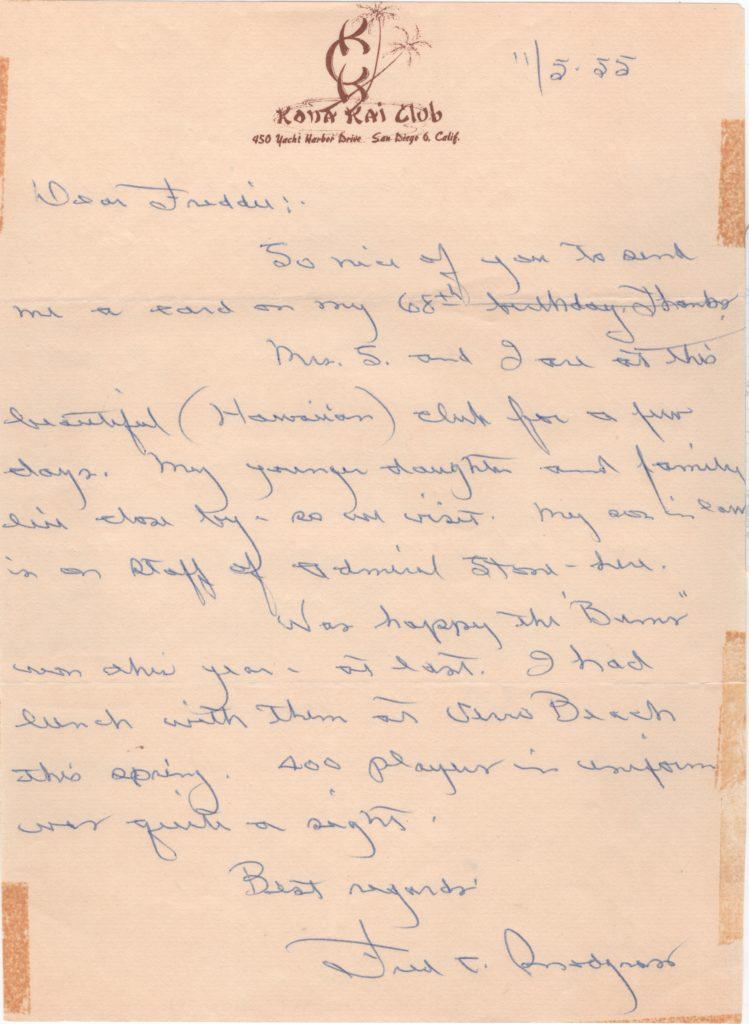 KONA KAI Club
450 Yacht Harbor Drive San Diego 6, Calif.
11/5-55
Dear Freddie;-
So nice of you to send
me a card on my 68th birthday. Thanks.
Mrs. S. and I are at this
beautiful (Hawaiian) club for a few
days. My younger daughter and family
live close by - so we visit. My son in law
is on staff of Admiral Stone - here.
Was happy the "Bums"
won this year - at last. I had
lunch with them at Vero Beach
this spring. 400 players in uniform
was quite a sight.
Best regards
Fred C. Snodgrass